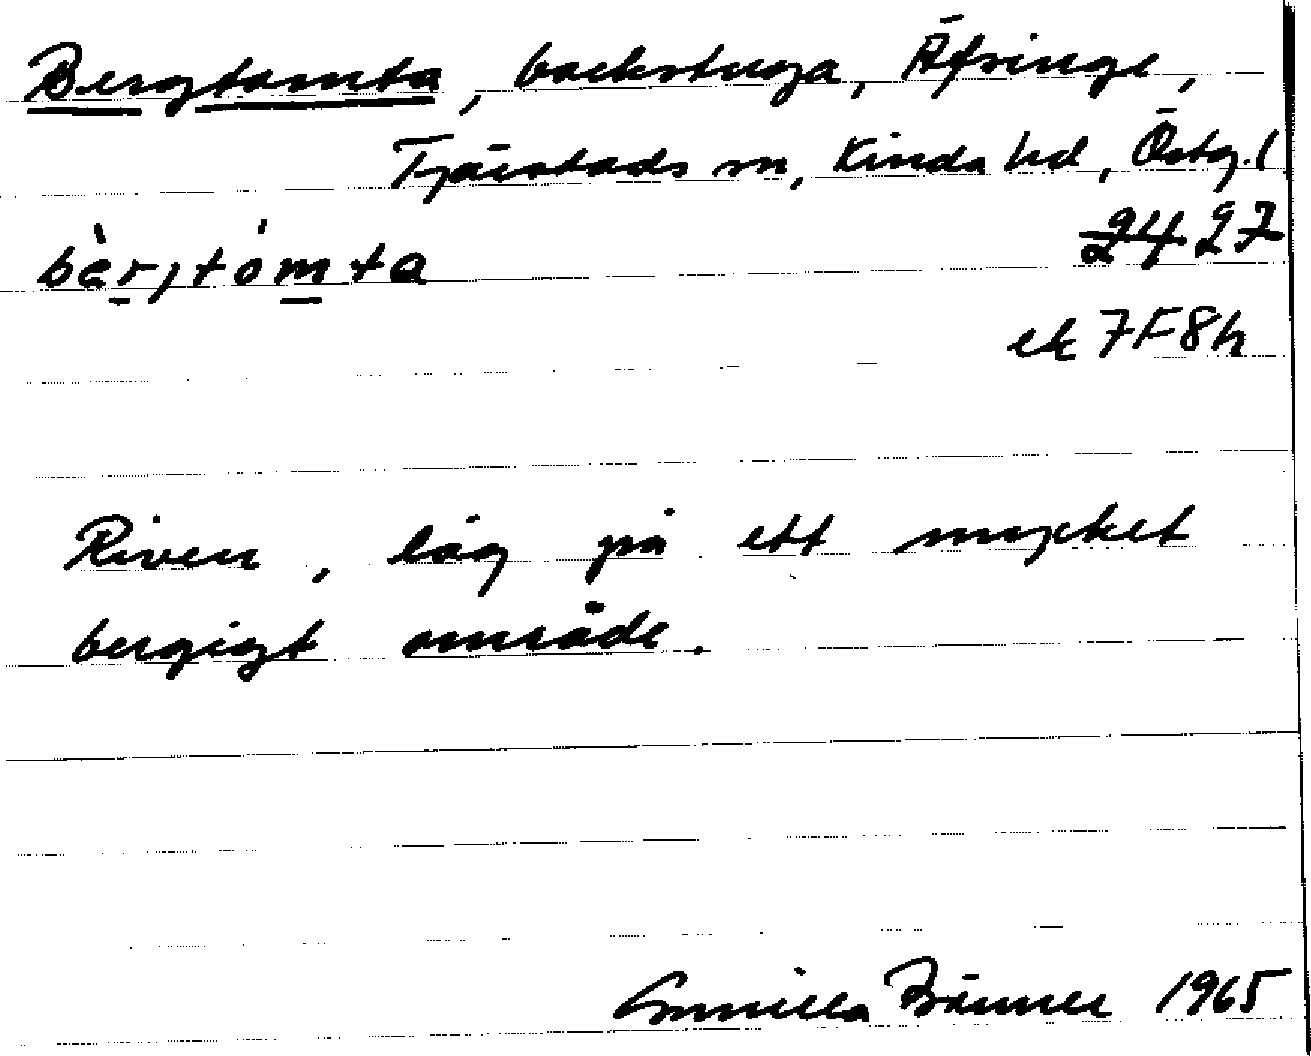 Bergtomta, backstuga, Äfsinge,
Tjärstads sn, Kinda hd, Östg.l
bèrjtómta 2427
ek 7F8h
Riven, låg på ett mycket
bergigt område.
Gunilla 1965